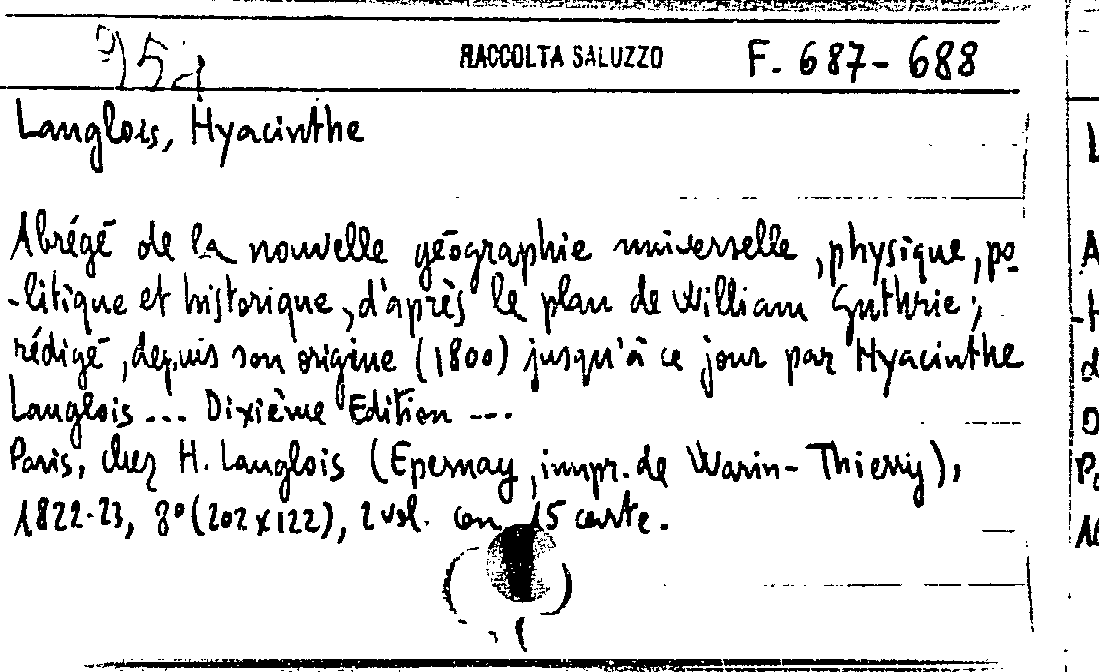 95a RACCOLTA SALUZZO F. 687-688
Langlois, Hyacinthe
Abrégé de la nouvelle géographie universelle, physique, po-
-litique et historique, d'après le plan de William Guthrie;
rédigé, depuis son origine (1800) jusqu'à ce jour par Hyacinthe
Langlois ... Dixième Edition ---
Paris, chez H. Langlois (Epernay, impr. de Warin-Thierry),
1822-23, 8° (202x122), 2 vol. con 15 carte.